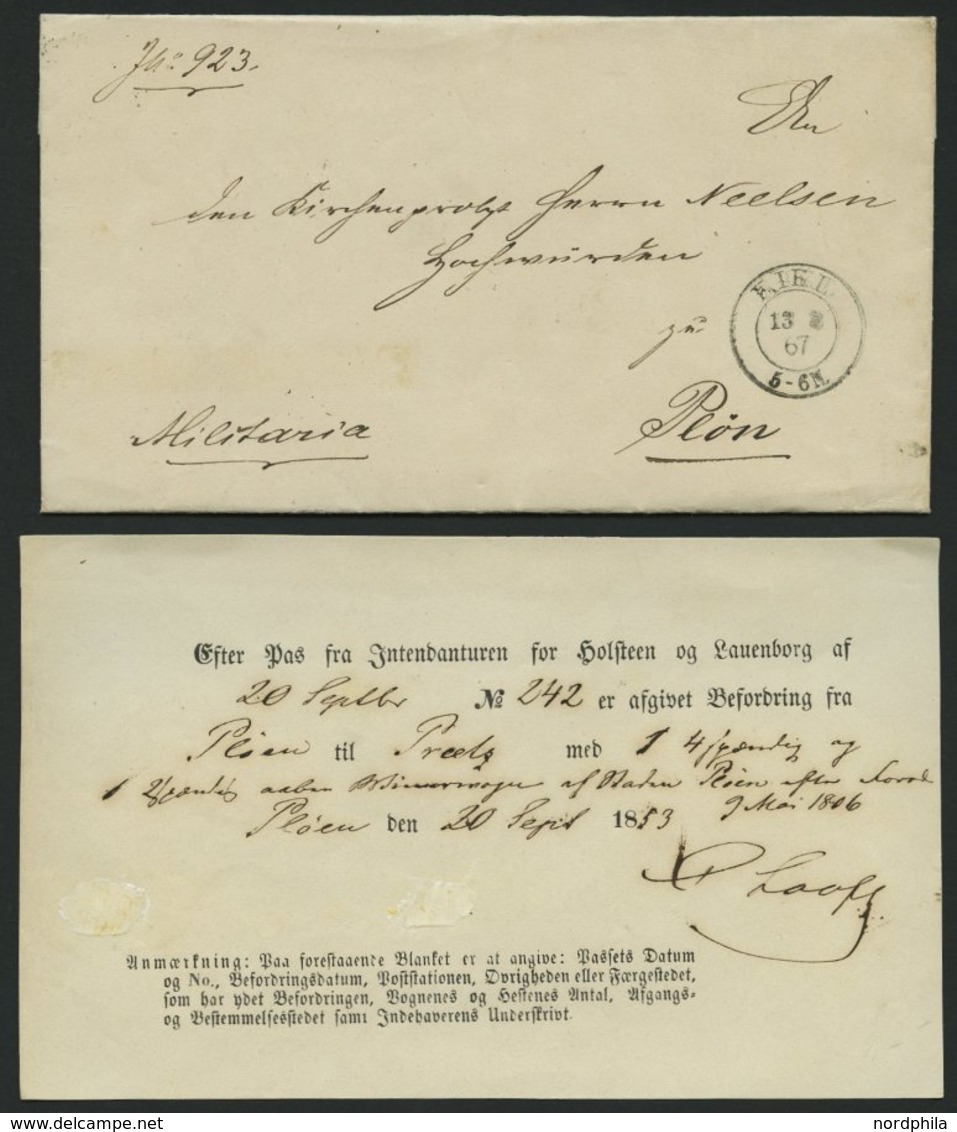 J№ 923.
An
den Kirchenprobst Herrn Neelsen
Hochwürden
zu
Plön
Militaria
KIEL
13 2
67
5-6N.
Efter Pas fra Intendanturen for Holsteen og Lauenborg af
20 Septbr № 242 er afgivet Befordring fra
Pløen til Preetz med 1 4spændig og
1 2spændig aaben Wienervogn af Staden Pløen efter
9 Mai 1806
Pløen den 20 Sept 1853
Anmærkning: Paa forestaaende Blanket er at angive: Passets Datum
og No., Befordringsdatum, Poststationen, Øvrigheden eller Færgestedet,
som har ydet Befordringen, Vognenes og Hestenes Antal, Afgangs-
og Bestemmelsesstedet samt Indehaverens Underskrivt.
www.delcampe.net
nordphila